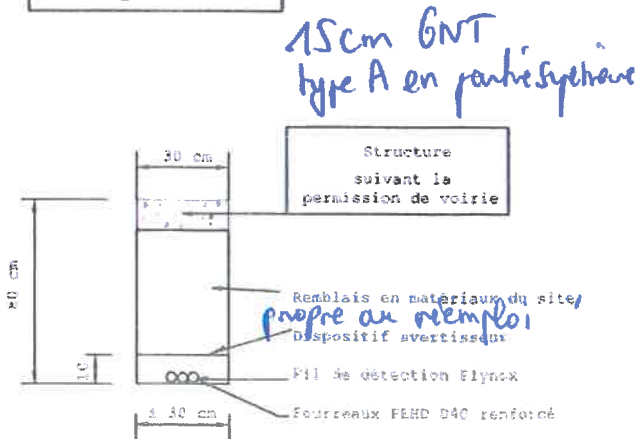 15cm GNT
type A en partie supérieure
30 cm
Structure
suivant la
permission de voirie
80 cm
Remblais en matériaux du site,
propre au réemploi
Dispositif avertisseur
10
Fil de détection Plynox
Fourreaux PEHD D40 renforcé
± 30 cm